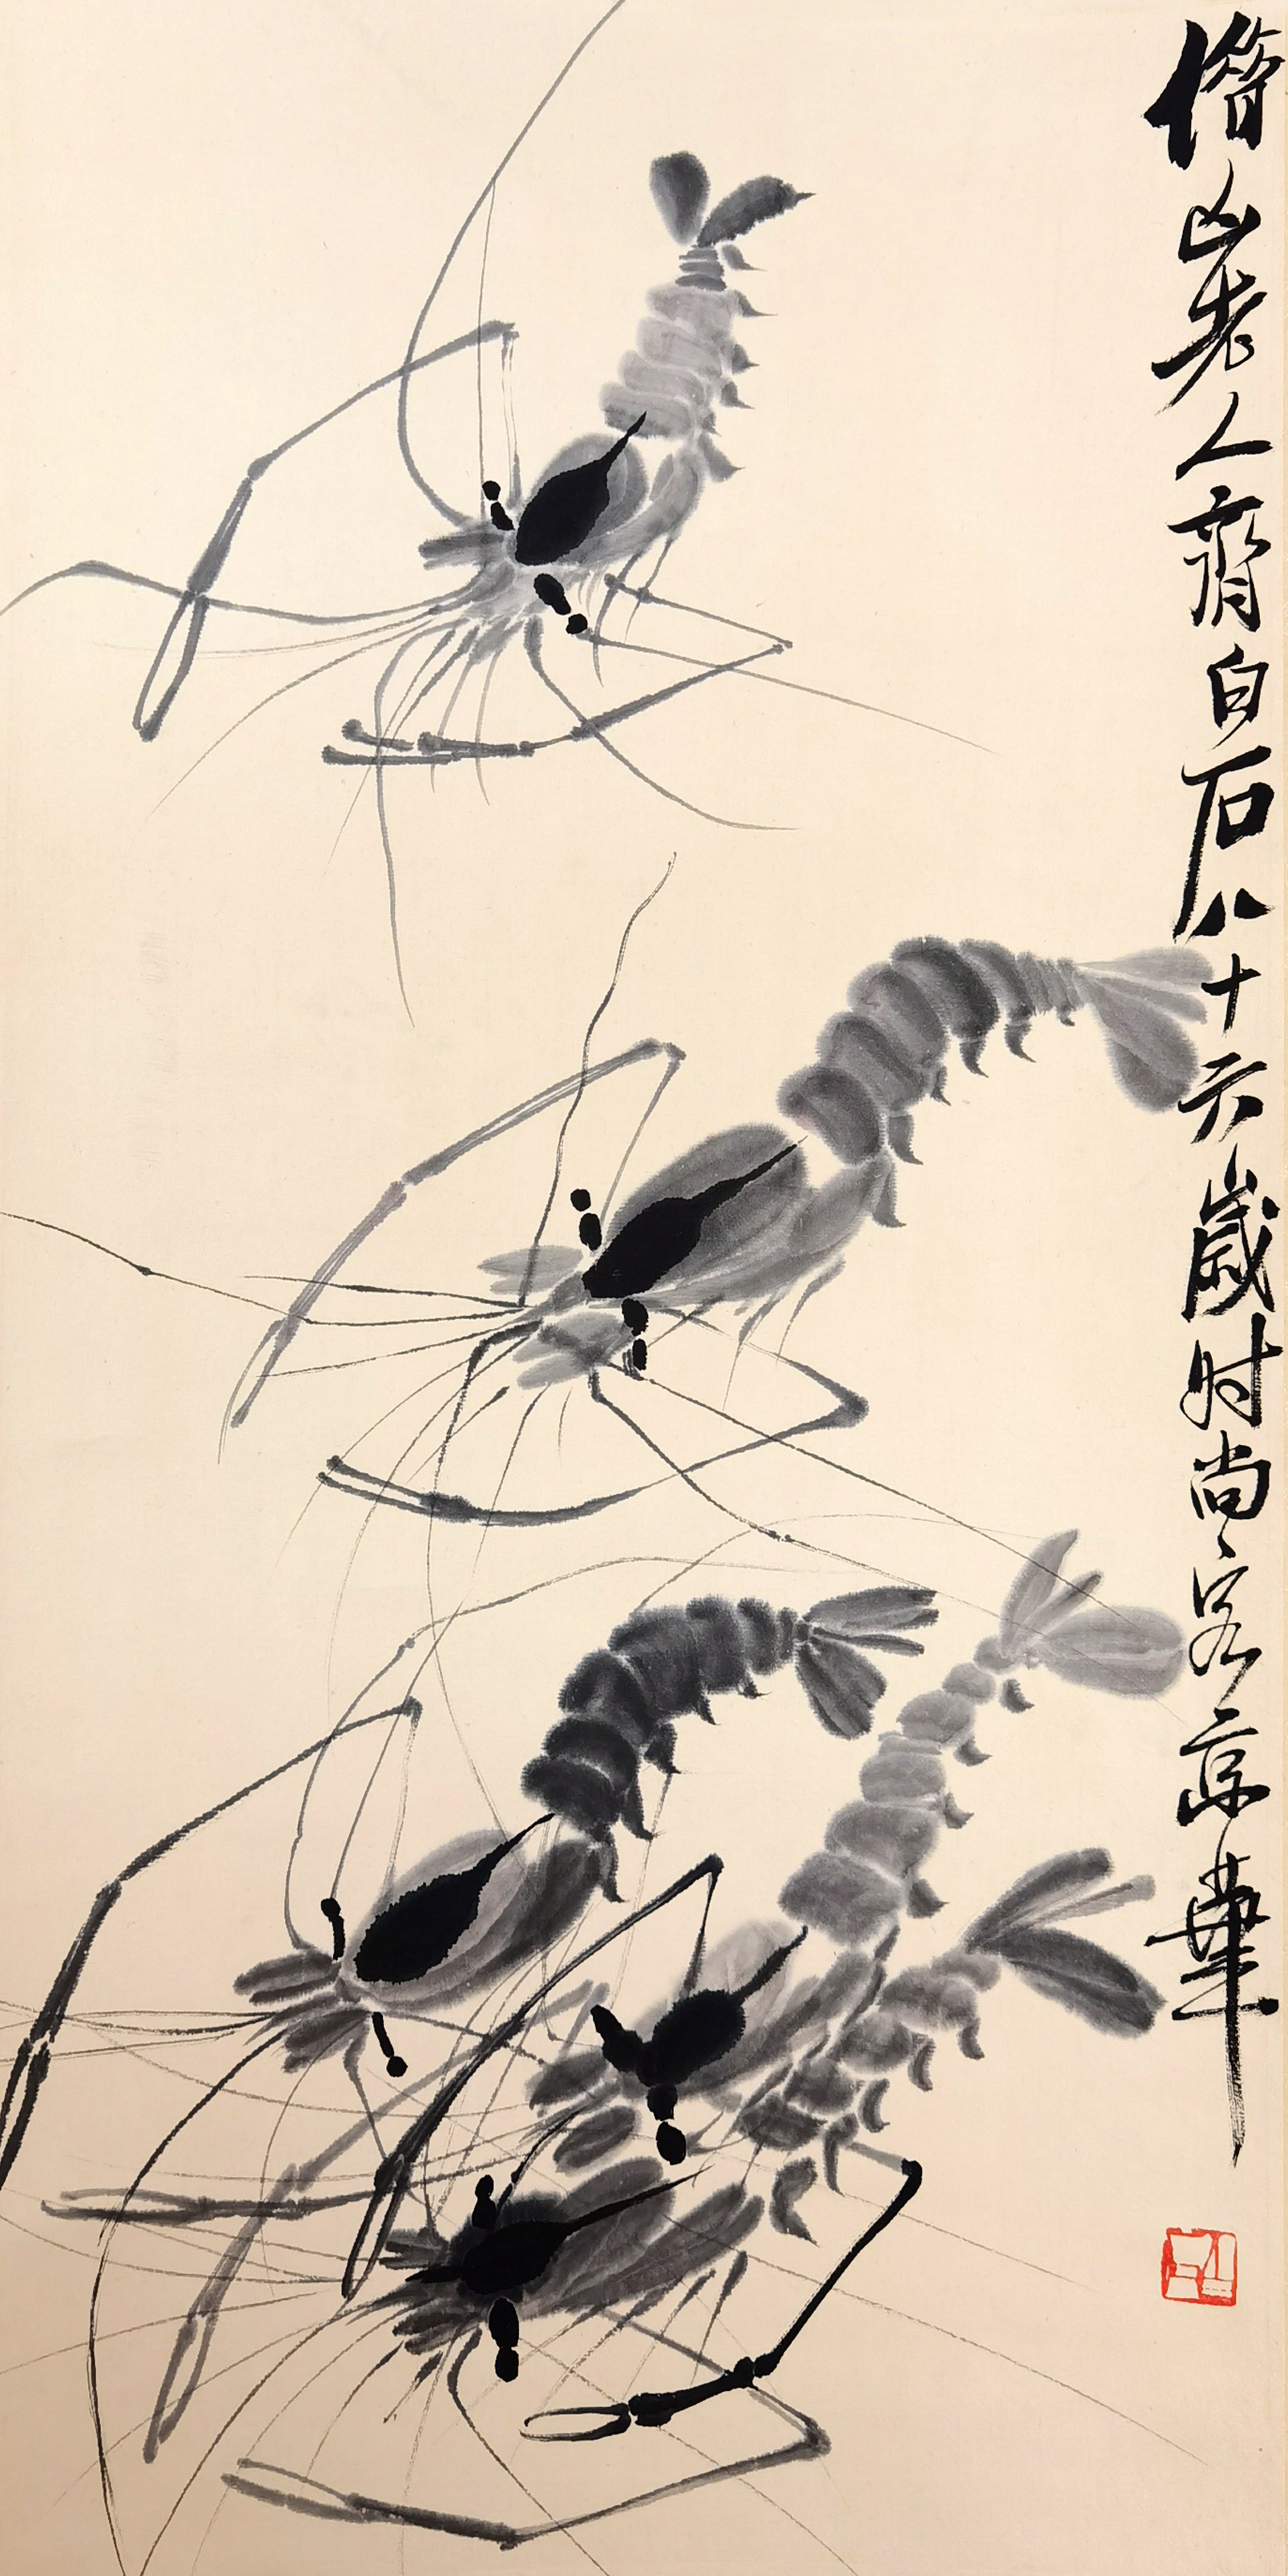 借山老人齊白石八十六歲时尚客京華